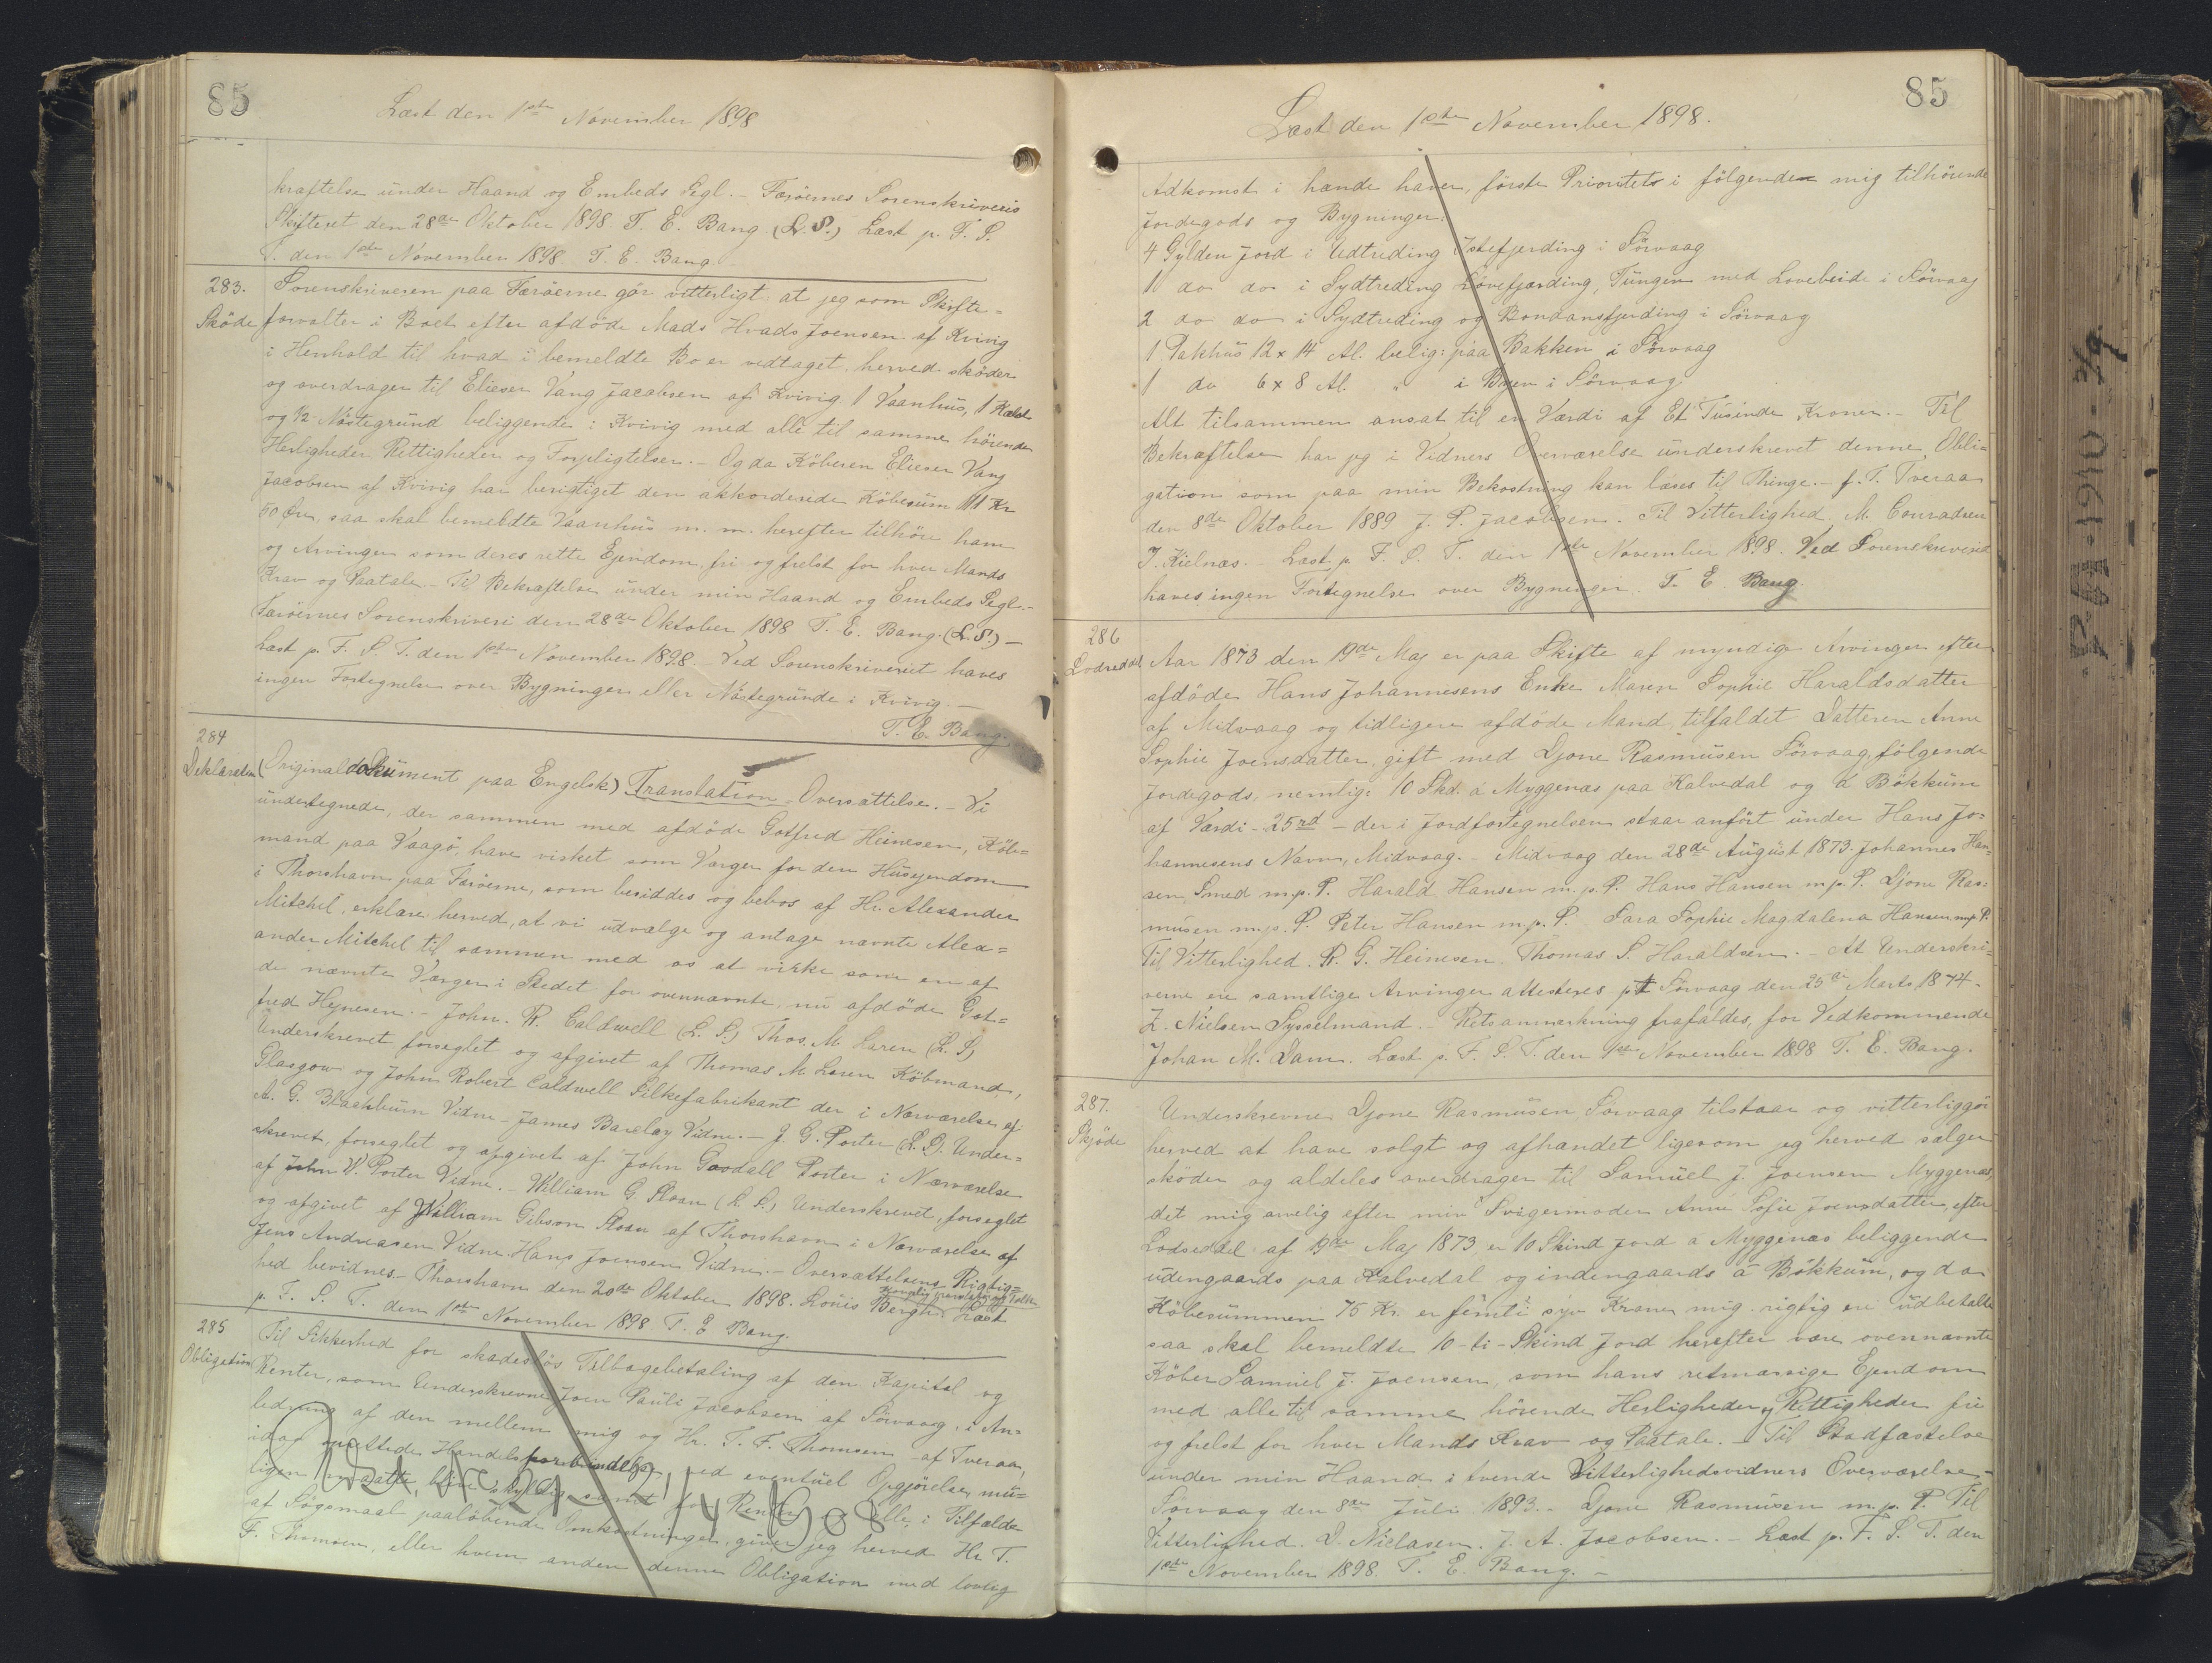 85
Læst den 1ste November 1898
kræftelse under Haand og Embeds Segl. - Færöernes Sorenskriveris
Skifteret den 28de Oktober 1898. T. E. Bang (L. S.) Læst p. F. S.
T. den 1ste November 1898. T. E. Bang
283.
Sköde
Sorenskriveren paa Færöerne gör vitterligt: at jeg som Skifte=
forvalter i Boet efter afdöde Mads Hvads Joensen af Kvivig
i Henhold til hvad i bemeldte Bo er vedtaget, herved sköder
og overdrager til Elieser Vang Jacobsen af Kvivig 1 Vaanhus, 1 Kalvh
og 1/2 Nöstegrund beliggende i Kvivig med alle til samme hörende
Herligheder Rettigheder og Forpligtelser. - Og da Köberen Elieser Vang
Jacobsen af Kvivig har berigtiget den akkorderede Köbesum 111 Kr
50 Öre, saa skal bemeldte Vaanhus m. m. herefter tilhöre ham
og Arvinger som deres rette Ejendom, fri og frelst for hver Mands
Krav og Paatale. - Til Bekræftelse under min Haand og Embeds Segl. -
Færöernes Sorenskriveri den 28de Oktober 1898 T. E. Bang. (L. S.) -
Læst p. F. S. T. den 1ste November 1898. - Ved Sorenskriveriet haves
ingen Fortegnelse over Bygninger eller Nöstegrunde i Kvivig. -
T. E. Bang.
284
Deklaration
(Originaldokument paa Engelsk) Translation - Oversættelse. - Vi
undertegnede, der sammen med afdöde Gotfred Heinesen, Köb=
mand paa Vaagö, have virket som Værger for den Husejendom
i Thorshavn paa Færöerne, som besiddes og bebos af Hr. Alexander
Mitchel, erklære herved, at vi udvælge og antage nævnte Alex=
ander Mitchel til sammen med os at virke som en af
de nævnte Værger i Stedet for ovennævnte, nu afdöde Got=
fred Heynesen. - John. R. Caldwell (L. S.) Thos. M Laren (L. S)
Underskrevet, forseglet og afgivet af Thomas M Laren Köbmand,
Glasgow og John Robert Caldwell Silkefabrikant der i Nærværelse af
A. G. Blackburn Vidne - James Barclay Vidne. - J. G. Porter (L. S). Under=
skrevet, forseglet og afgivet af John Goodall Porter i Nærværelse
af John W. Porter Vidne. - William G Sloan (L. S.) Underskrevet, forseglet
og afgivet af William Gibson Sloan af Thorshavn i Nærværelse af
Jens Andreasen Vidne. Hans Joensen Vidne. - Oversættelsens Rigtig=
hed bevidnes. - Thorshavn den 20de Oktober 1898. Louis Bergh Læst
p. F. S. T. den 1ste November 1898 T. E Bang.
285
Obligation
Til Sikkerhed for skadeslös Tilbagebetaling af den Kapital og
Renter, som Underskrevne Joen Pauli Jacobsen af Sörvaag, i An=
ledning af den mellem mig og Hr. T. F. Thomsen af Tveraa,
idag oprettede Handelsforbindelse, ved eventuel Opgjörelse mu=
ligen maatte blive skyldig samt for Renter og alle, i Tilfælde
af Sögsmaal paalöbende Omkostninger, giver jeg herved Hr T.
F. Thomsen, eller hvem anden denne Obligation med lovlig
21/4 1908
85
Læst den 1ste November 1898.
Adkomst i hænde haver, förste Prioritets i fölgende mig tilhörende
Jordegods og Bygninger:
4 Gylden Jord i Udtreding Istefjerding i Sörvaag
1 do do i Sydtreding Lövefjærding, Tungen med Lovebeide i Sörvaag
2 do do i Sydtreding og Bondansfjerding i Sörvaag
1 Pakhus 12 x 14 Al. belig: paa Bakken i Sörvaag
1 do 6 x 8 Al. " i Byen i Sörvaag
Alt tilsammen ansat til en Værdi af Et Tusinde Kroner. - Til
Bekræftelse har jeg i Vidners Overværelse underskrevet denne Obli=
gation som paa min Bekostning kan læses til Thinge. - f. T. Tveraa
den 8de Oktober 1889 J. P. Jacobsen. - Til Vitterlighed. M. Conradsen
J. Kielnæs. - Læst p. F. S. T. den 1ste November 1898. Ved Sorenskriveriet
haves ingen Fortegnelse over Bygninger. T. E. Bang.
286
Lodseddel
Aar 1873 den 19de Maj er paa Skifte af myndige Arvinger efter
afdöde Hans Johannesens Enke Maren Sophie Haraldsdatter
af Midvaag og tidligere afdöde Mand, tilfaldet Datteren Anne
Sophie Joensdatter, gift med Djone Rasmusen Sörvaag, fölgende
Jordegods, nemlig: 10 Skd. á Myggenæs paa Kalvedal og á Bökkum
af Værdi - 25rd - der i Jordfortegnelsen staar anfört under Hans Jo=
hannesens Navn, Midvaag. - Midvaag den 28de August 1873. Johannes Han=
sen Smed m. p. P. Harald Hansen m. p. P. Hans Hansen m. p. P. Djone Ras=
musen m. p. P. Peter Hansen m. p. P. Sara Sophie Magdalena Hansen m. p. P.
Til Vitterlighed. R. G. Heinesen. Thomas S. Haraldsen. - At Underskri=
verne ere samtlige Arvinger attesteres pt Sörvaag den 25de Marts 1874.
Z. Nielsen Sysselmand. - Retsanmærkning frafaldes, for Vedkommende
Johan M. Dam. Læst p. F. S. T. den 1ste November 1898 T. E. Bang.
287.
Skjöde
Underskrevne Djone Rasmusen Sörvaag tilstaar og vitterliggör
herved at have solgt og afhændet ligesom jeg herved sælger
sköder og aldeles overdrager til Samuel J. Joensen Myggenæs,
det mig arvelig efter min Svigermoder Anne Sofie Joensdatter, efter
Lodseddel af 19de Maj 1873, er 10 Skind Jord á Myggenæs beliggende
udengaards paa Kalvedal og indengaards á Bökkum, og da
Köbesummen 75 Kr. er femti syv Kroner mig rigtig ere udbetalte
saa skal bemeldte 10 - ti - Skind Jord herefter være ovennævnte
Köber Samuel J. Joensen, som hans retmæssige Ejendom
med alle til samme hörende Herligheder og Rettigheder fri
og frelst for hver Mands Krav og Paatale. - Til Stadfæstelse
under min Haand i tvende Vitterlighedsvidners Overværelse. -
Sörvaag den 8de Juli 1893. - Djone Rasmusen m. p. P. Til
Vitterlighed. D. Niclasen. J. A. Jacobsen. - Læst p. F. S. T. den
1ste November 1898. T. E. Bang. -